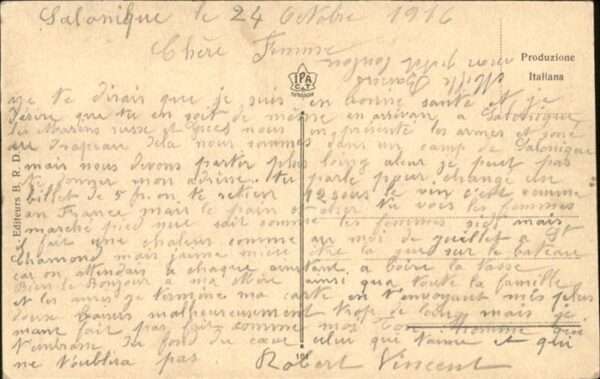 Salonique le 24 Octobre 1916
Chère Femme
mille Baisers
mon petit
Produzione
Italiana
IPA
CT
je te dirais que je suis en bonne santé et je
désire que tu en soit de même en arrivan a Salonique
les Marins russe et Grecs nous on présenté les armes et
au drapeau dela nous sommes dans un camp de Salonique
mais nous devons partir plus loing alor je peut pas
te donner mon adrese. tu parle pour change un
billet de 5 fr. on te retien 12 sous le vin c'est comme
en France mais le pain et cher tu vois les femmes
marche pied nue sait comme les femmes mais
il fait une chaleur comme au moi de Juillet a St
Chamond mais jaime mieu être la que sur le bateau
car on attendais a chaque instant a boire la tasse
Bien le Bonjour a ma Mère ainsi qua toute la famille
et les amis je termine ma carte en t'envoyant mes plus
doux Baiser malheureusement trop de loing mais je
mant fait pas fait comme moi ton Homme qui
t'embrase du fond du cœur celui que t'aime et qui
ne toublira pas Robert Vincent
Editeurs B. R. D.